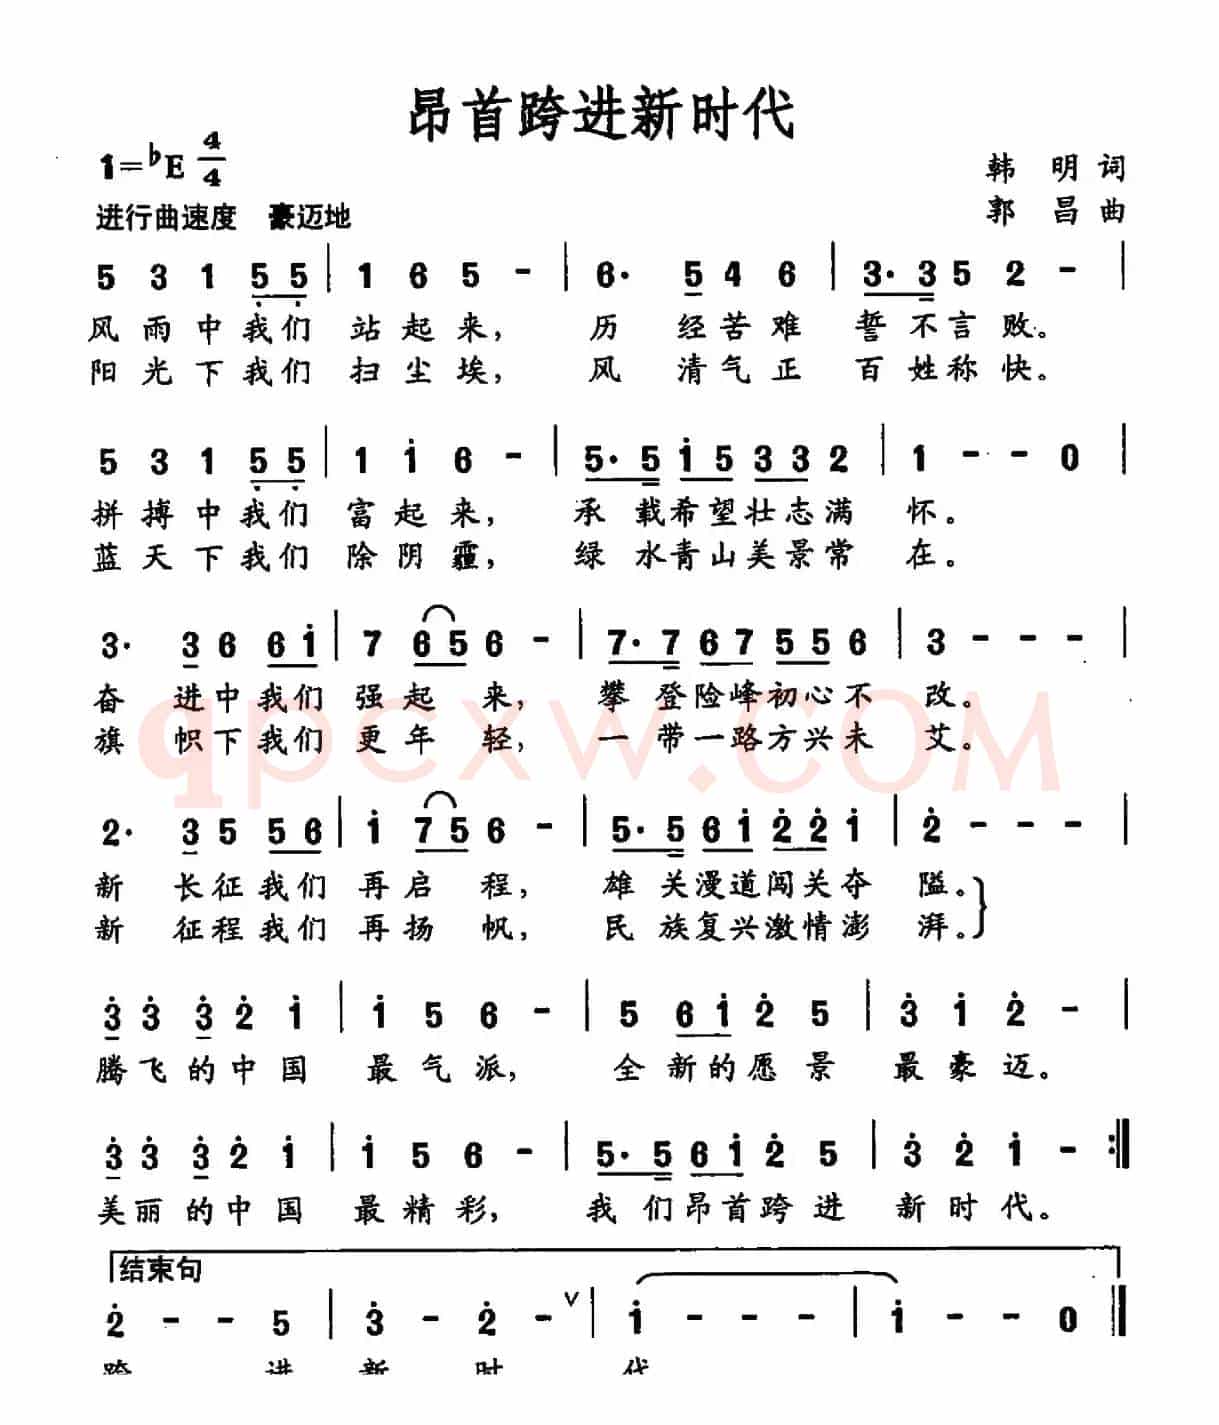 昂首跨进新时代
1=♭E 4/4
韩 明 词
进行曲速度 豪迈地
郭 昌 曲
5 3 1 5̣ 5̣ | 1 6 5 - | 6· 5 4 6 | 3· 3 5 2 - |
风雨中我们 站起来, 历 经苦难 誓不言败。
阳光下我们 扫尘埃, 风 清气正 百姓称快。
5 3 1 5̣ 5̣ | 1 1̇ 6 - | 5· 5 1̇ 5 3 3 2 | 1 - - 0 |
拼搏中我们 富起来, 承 载希望壮志满 怀。
蓝天下我们 除阴霾, 绿 水青山美景常 在。
3· 3 6 6 1̇ | 7 6 5 6 - | 7· 7 6 7 5 5 6 | 3 - - - |
奋 进中我们 强起 来, 攀 登险峰初心不 改。
旗 帜下我们 更年 轻, 一 带一路方兴未 艾。
qpcxw.COM
2· 3 5 5 6 | 1̇ 7 5 6 - | 5· 5 6 1̇ 2̇ 2̇ 1̇ | 2̇ - - - |
新 长征我们 再启 程, 雄 关漫道闯关夺 隘。
新 征程我们 再扬 帆, 民 族复兴激情澎 湃。
3̇ 3̇ 3̇ 2̇ 1̇ | 1̇ 5 6 - | 5 6 1̇ 2̇ 5 | 3̇ 1̇ 2̇ - |
腾飞的中国 最气派, 全新的愿景 最豪迈。
3̇ 3̇ 3̇ 2̇ 1̇ | 1̇ 5 6 - | 5· 5 6 1̇ 2̇ 5 | 3̇ 2̇ 1̇ - :||
美丽的中国 最精彩, 我 们昂首跨进 新时代。
结束句
2̇ - - 5 | 3̇ - 2̇ - ∨ | 1̇ - - - | 1̇ - - 0 ||
跨 进 新 时 代